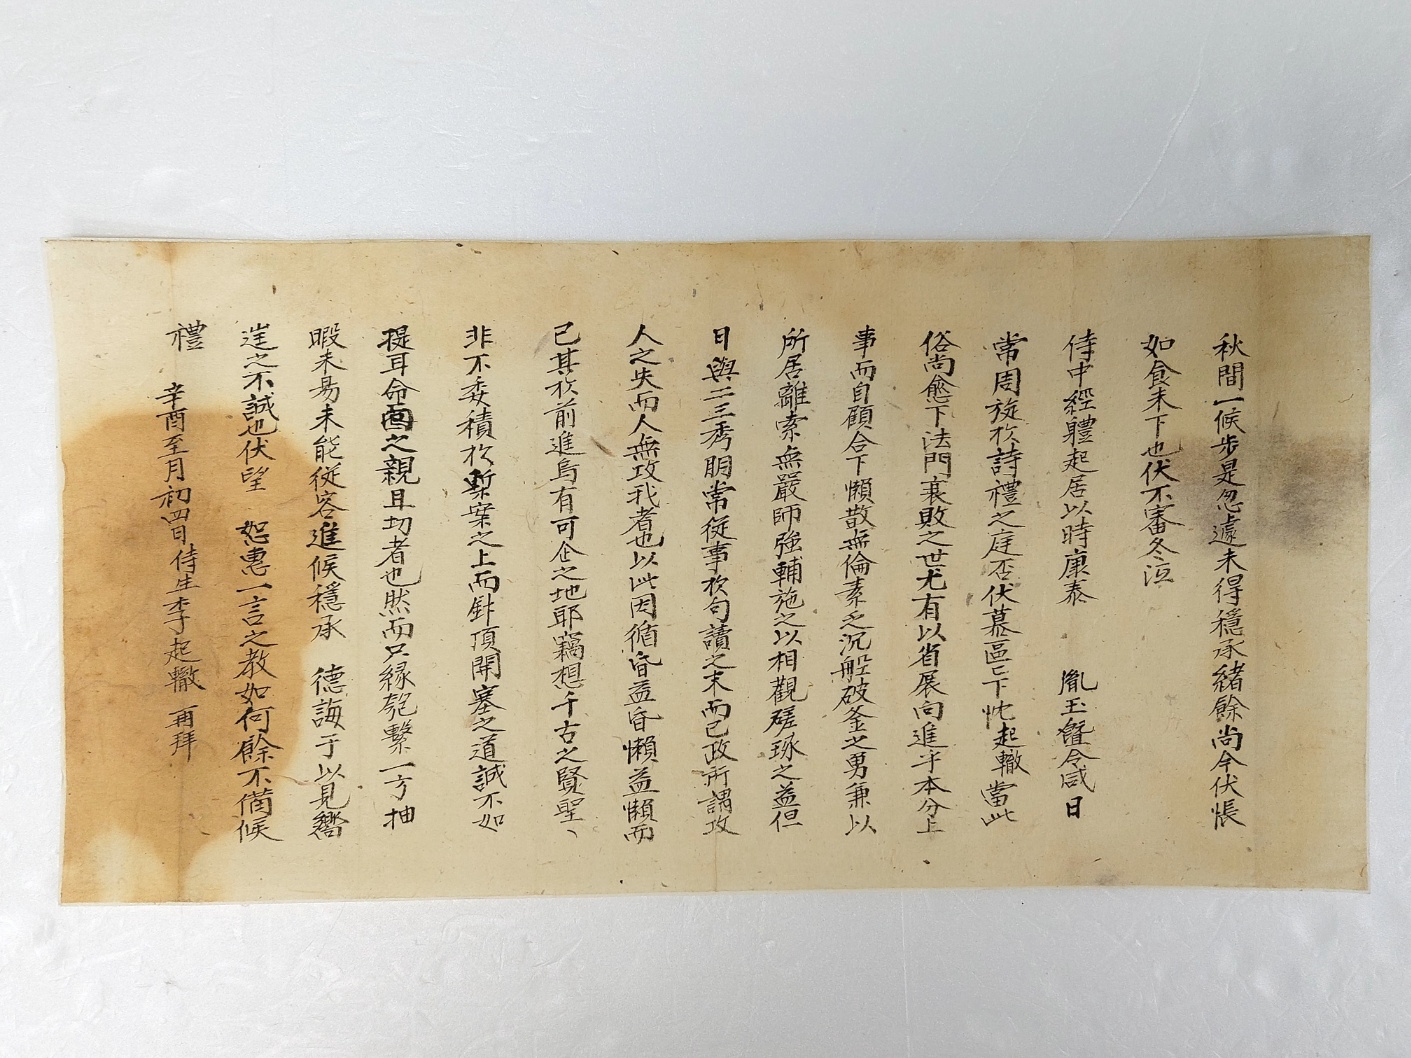 秋間一候步是忽遽未得穩承緖餘尚今伏悵
如食未下也伏不審冬沍
侍中經體起居以時康泰 胤玉曁令咸日
常周旋於詩禮之庭否伏慕區區下忱起轍當此
俗尚愈下法門衰敗之世尤有以省展向進乎本分上
事而自顧合下懶散無倫素乏沉船破釜之勇兼以
所居離索無嚴師強輔施之以相觀磋琢之益但
日與二三秀朋常從事於句讀之末而已政所謂攻
人之失而人無攻我者也以此因循昏益昏懶益懶而
已其於前進烏有可企之地耶竊想千古之賢聖
非不委積於槧案之上而針頂開塞之道誠不如
提耳命面之親且切者也然而只緣匏繫一方抽
暇未易未能從容進候穩承 德誨于以見嚮
逞之不誠也伏望 恕惠一言之教如何餘不備候
禮
辛酉至月初四日侍生李起轍 再拜